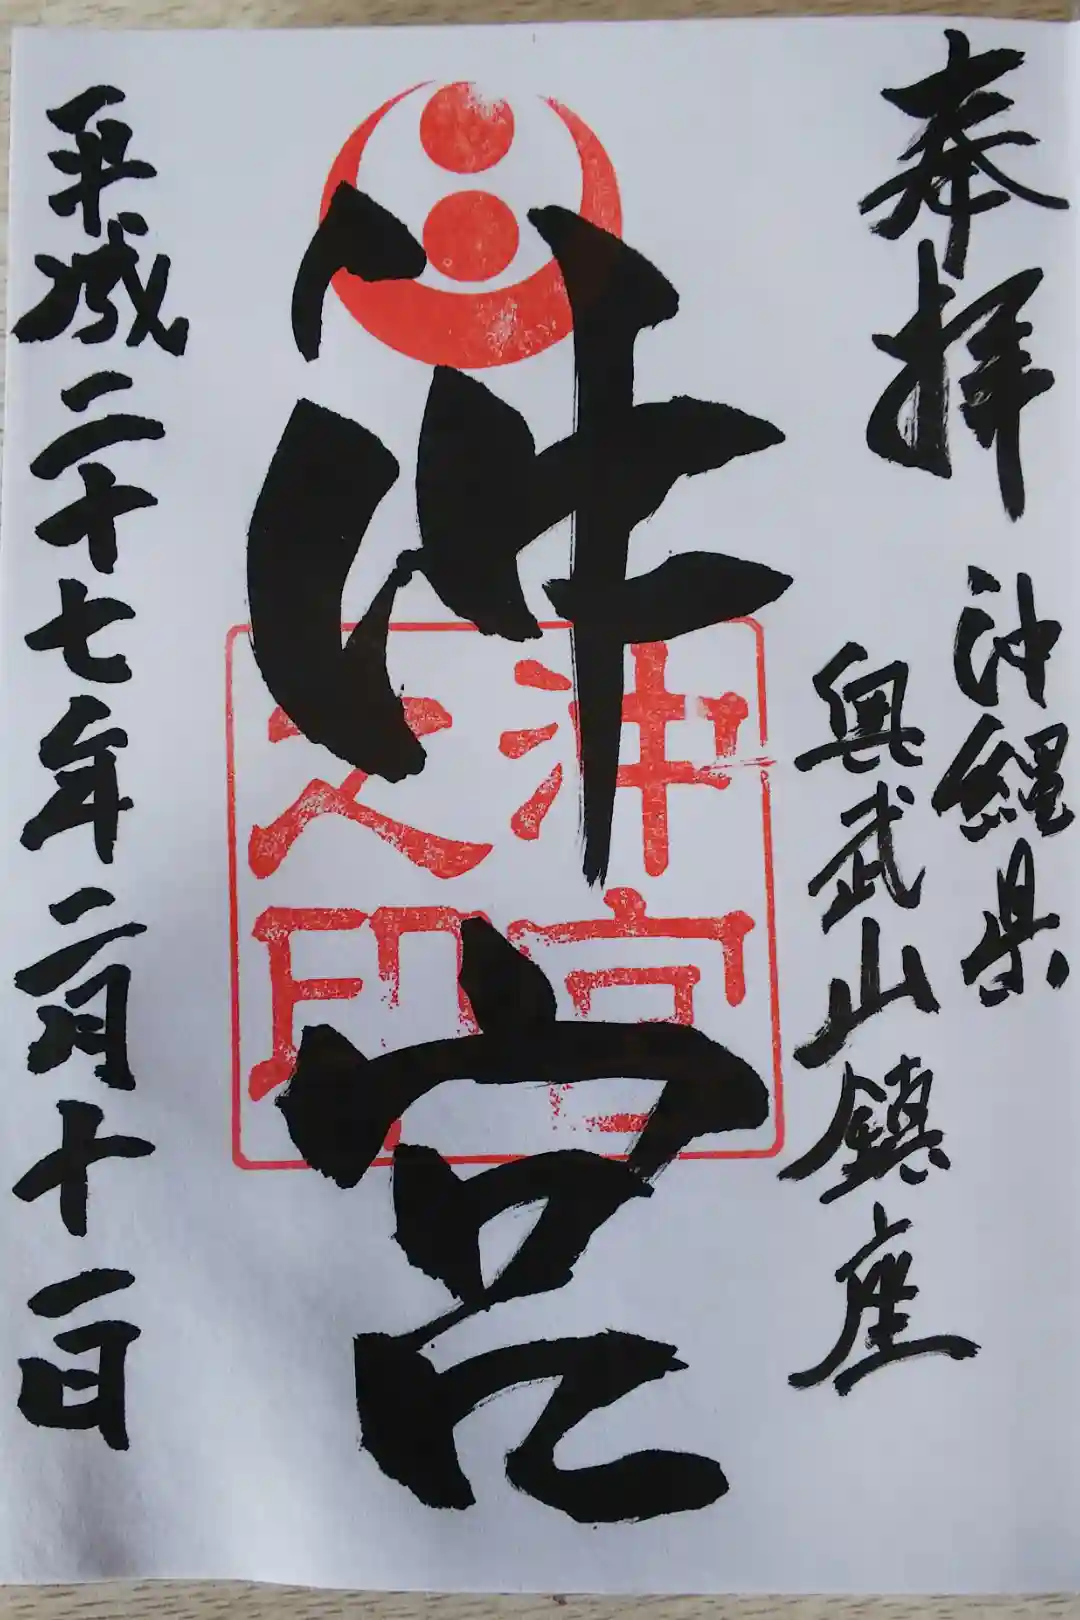 奉拝
沖縄県
奥武山鎮座
沖宮
沖宮之印
平成二十七年二月十一日